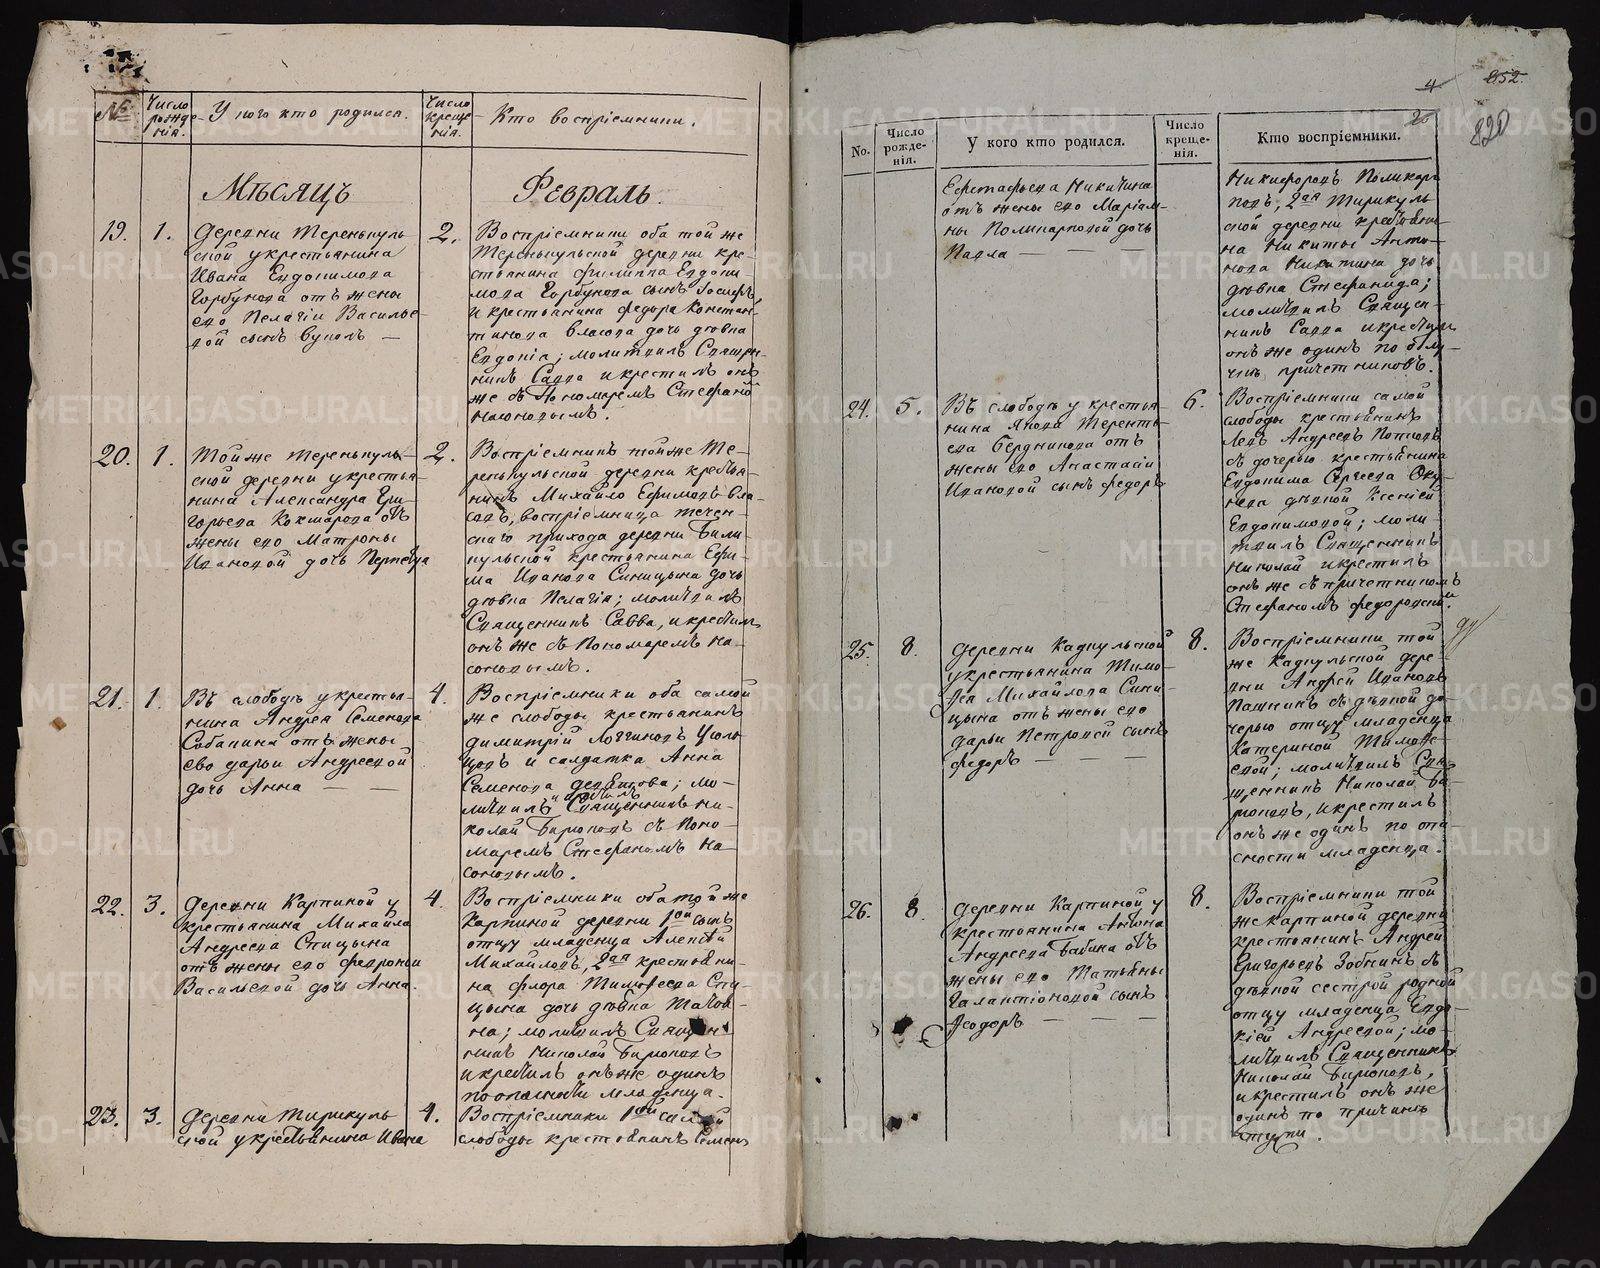 №
Число рожде-
нія.
У кого кто родился.
Число креще-
нія.
Кто воспріемники.
Мѣсяцъ
Февраль.
19.
1.
Деревни Теренькуль
ской у крестьянина
Ивана Евдокимова
Горбунова отъ жены
его Пелагіи Василье-
вой сынъ Вуколъ —
2.
Воспріемники оба той же
Теренькульской деревни кре-
стьянина Филиппа Евдоки-
мова Горбунова сынъ Іосифъ
и крестьянина Федора Констан-
тинова Власова дочь дѣвка
Евдокія; молитвилъ Священ-
никъ Савва и крестилъ онъ
же съ Пономаремъ Стефаномъ
Наконовымъ.
20.
1.
Той же Теренькуль-
ской деревни у крестья-
нина Александра Гри-
горьева Кокшарова отъ
жены его Матроны
Ивановой дочь
2.
Воспріемникъ той же Те-
ренькульской деревни крестья-
нинъ Михайло Ефимовъ Вла-
совъ, воспріемница Течен-
скаго прихода деревни
кульской крестьянина Ефи-
ма Иванова Синицына дочь
дѣвка Пелагія; молитвилъ
Священникъ Савва, и крестилъ
онъ же съ Пономаремъ На-
соновымъ.
21.
1.
Въ слободѣ у крестья-
нина Андрея Семенова
Собакина отъ жены
ево Дарьи Андреевой
дочь Анна — —
4.
Воспріемники оба самой
же слободы крестьянинъ
Димитрій Логгиновъ
и солдатка Анна
Семенова; мо-
литвилъ и крестилъ Священникъ Ни-
колай Бирюковъ съ Поно-
маремъ Стефаномъ На-
соновымъ.
22.
3.
Деревни Карпиной у
крестьянина Михайла
Андреева Спицына
отъ жены его Февроньи
Васильевой дочь Анна.
4.
Воспріемники оба той же
Карпиной деревни 1ой сынъ
отцу младенца Алексѣй
Михайловъ, 2ая крестьяни-
на Флора Тимофеева Спи-
цына дочь дѣвка Татья-
на; молитвилъ Священ-
никъ Николай Бирюковъ
и крестилъ онъ же одинъ
по опасности младенца.
23.
3.
Деревни Тирикуль
ской у крестьянина Ивана
4.
Воспріемники 1ой самой
слободы крестьянинъ Семенъ
4
852.
26
820
No.
Число рожде-
нія.
У кого кто родился.
Число креще-
нія.
Кто воспріемники.
Евстафьева Никитина
отъ жены его Маріам-
ны Поликарповой дочь
Павла —
Никифоровъ Поликар-
повъ, 2ая Тирикуль
ской деревни крестьяни-
на Никиты Анто-
нова Никитина дочь
дѣвка Стефанида;
молитвилъ Священ-
никъ Савва и крестилъ
онъ же одинъ по
причетниковъ.
24.
5.
Въ слободѣ у крестья-
нина Якова Теренть-
ева Бердникова отъ
жены его Анастасіи
Ивановой сынъ Федоръ
6.
Воспріемники самой
слободы крестьянинъ
Левъ Андреевъ Поповъ
съ дочерью крестьянина
Евдокима Сергеева Оку-
нева дѣвкой Ксеніей
Евдокимовой; моли-
твилъ Священникъ
Николай и крестилъ
онъ же съ причетникомъ
Стефаномъ Федоровскимъ.
25.
8.
Деревни Кадкульской
у крестьянина Тимо-
фея Михайлова Сини-
цына отъ жены его
Дарьи Петровой сынъ
Федоръ — — —
8.
Воспріемники той
же Кадкульской дере-
вни Андрей Ивановъ
Пашнинъ съ дѣвкой до-
черью отцу младенца
Катериной Тимофе-
евой; молитвилъ Свя-
щенникъ Николай Би-
рюковъ, и крестилъ
онъ же одинъ по опа-
сности младенца.
26.
8.
Деревни Карпиной у
крестьянина Антона
Андреева Бабина отъ
жены его Татьяны
Галактіоновой сынъ
Ѳеодоръ — — —
8.
Воспріемники той
же Карпиной деревни
крестьянинъ Андрей
Григорьевъ Зобнинъ съ
дѣвкой сестрой родной
отцу младенца Евдо-
кіей Андреевой; мо-
литвилъ Священникъ
Николай Бирюковъ,
и крестилъ онъ же
одинъ по причинѣ
стужи.